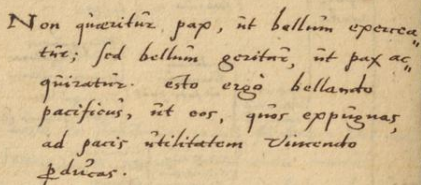 Non quæritur pax, ut bellum exercea„
tur; sed bellum geritur, ut pax ac„
quiratur. esto ergo bellando
pacificus, ut eos, quos expugnas,
ad pacis utilitatem vincendo
ꝑducas.